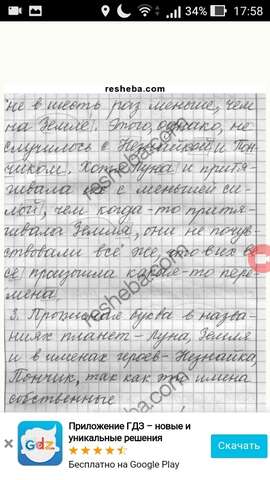 34% 17:58
resheba.com
не в шесть раз меньше, чем
на Земле. Этого, однако, не
случилось с Незнайкой и Пон-
чиком. Хотя Луна и притя-
гивала их с меньшей си-
лой, чем когда-то притя-
гивала Земля, они не почув-
ствовали всё же, что в их ве
се произошла какая-то пере-
мена.
3. Прописная буква в назва-
ниях планет - Луна, Земля
и в именах героев - Незнайка,
Пончик, так как это имена
собственные
resheba.com
resheba.com
resheba.com
Приложение ГДЗ – новые и
уникальные решения
Бесплатно на Google Play
Gdz
Скачать